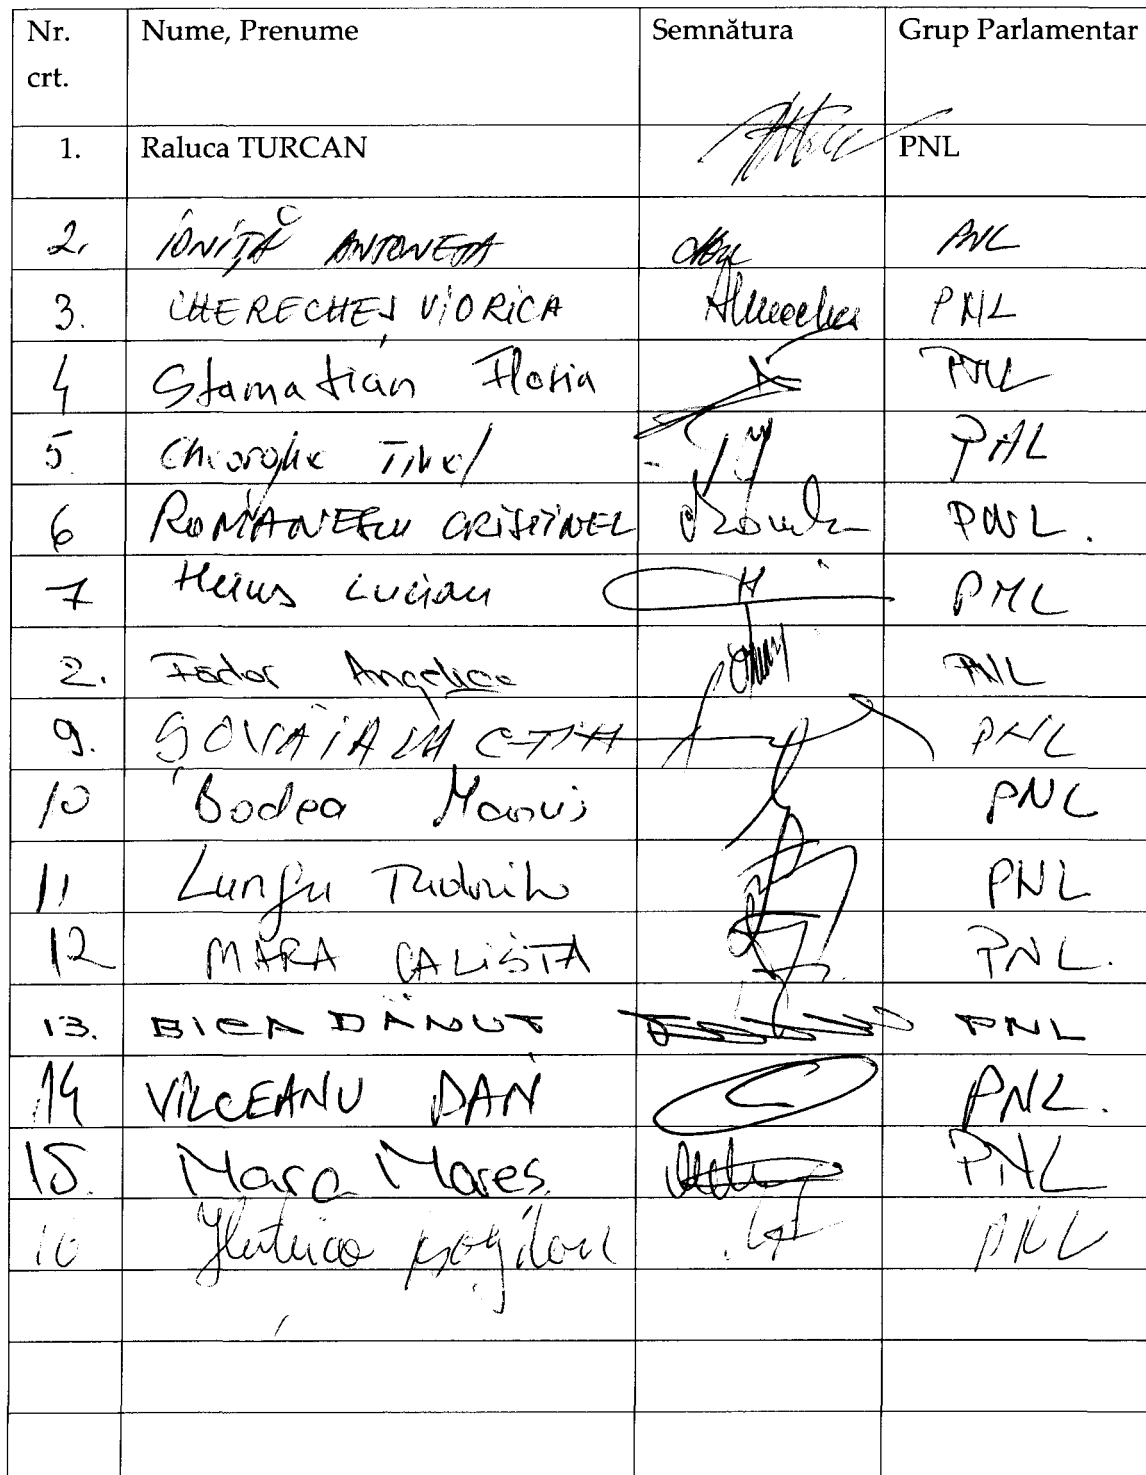 Nr. crt. Nume, Prenume Semnătura Grup Parlamentar
1. Raluca TURCAN PNL
2. IONIȚĂ ANTONETA PNL
3. CHERECHEȘ VIORICA PNL
4 Stamatian Florin PNL
5. Gheorghe Tinel PNL
6 ROMANESCU CRISTINEL PNL.
7 Heius Lucian PNL
2. Fodor Angelica PNL
9. PNL
10 Bodea Marius PNL
11 Lungu Tudorița PNL
12 MARA CALISTA PNL.
13. BICA DĂNUȚ PNL
14 VÎLCEANU DAN PNL.
15. Mara Mareș PNL
16 Bogdan PNL